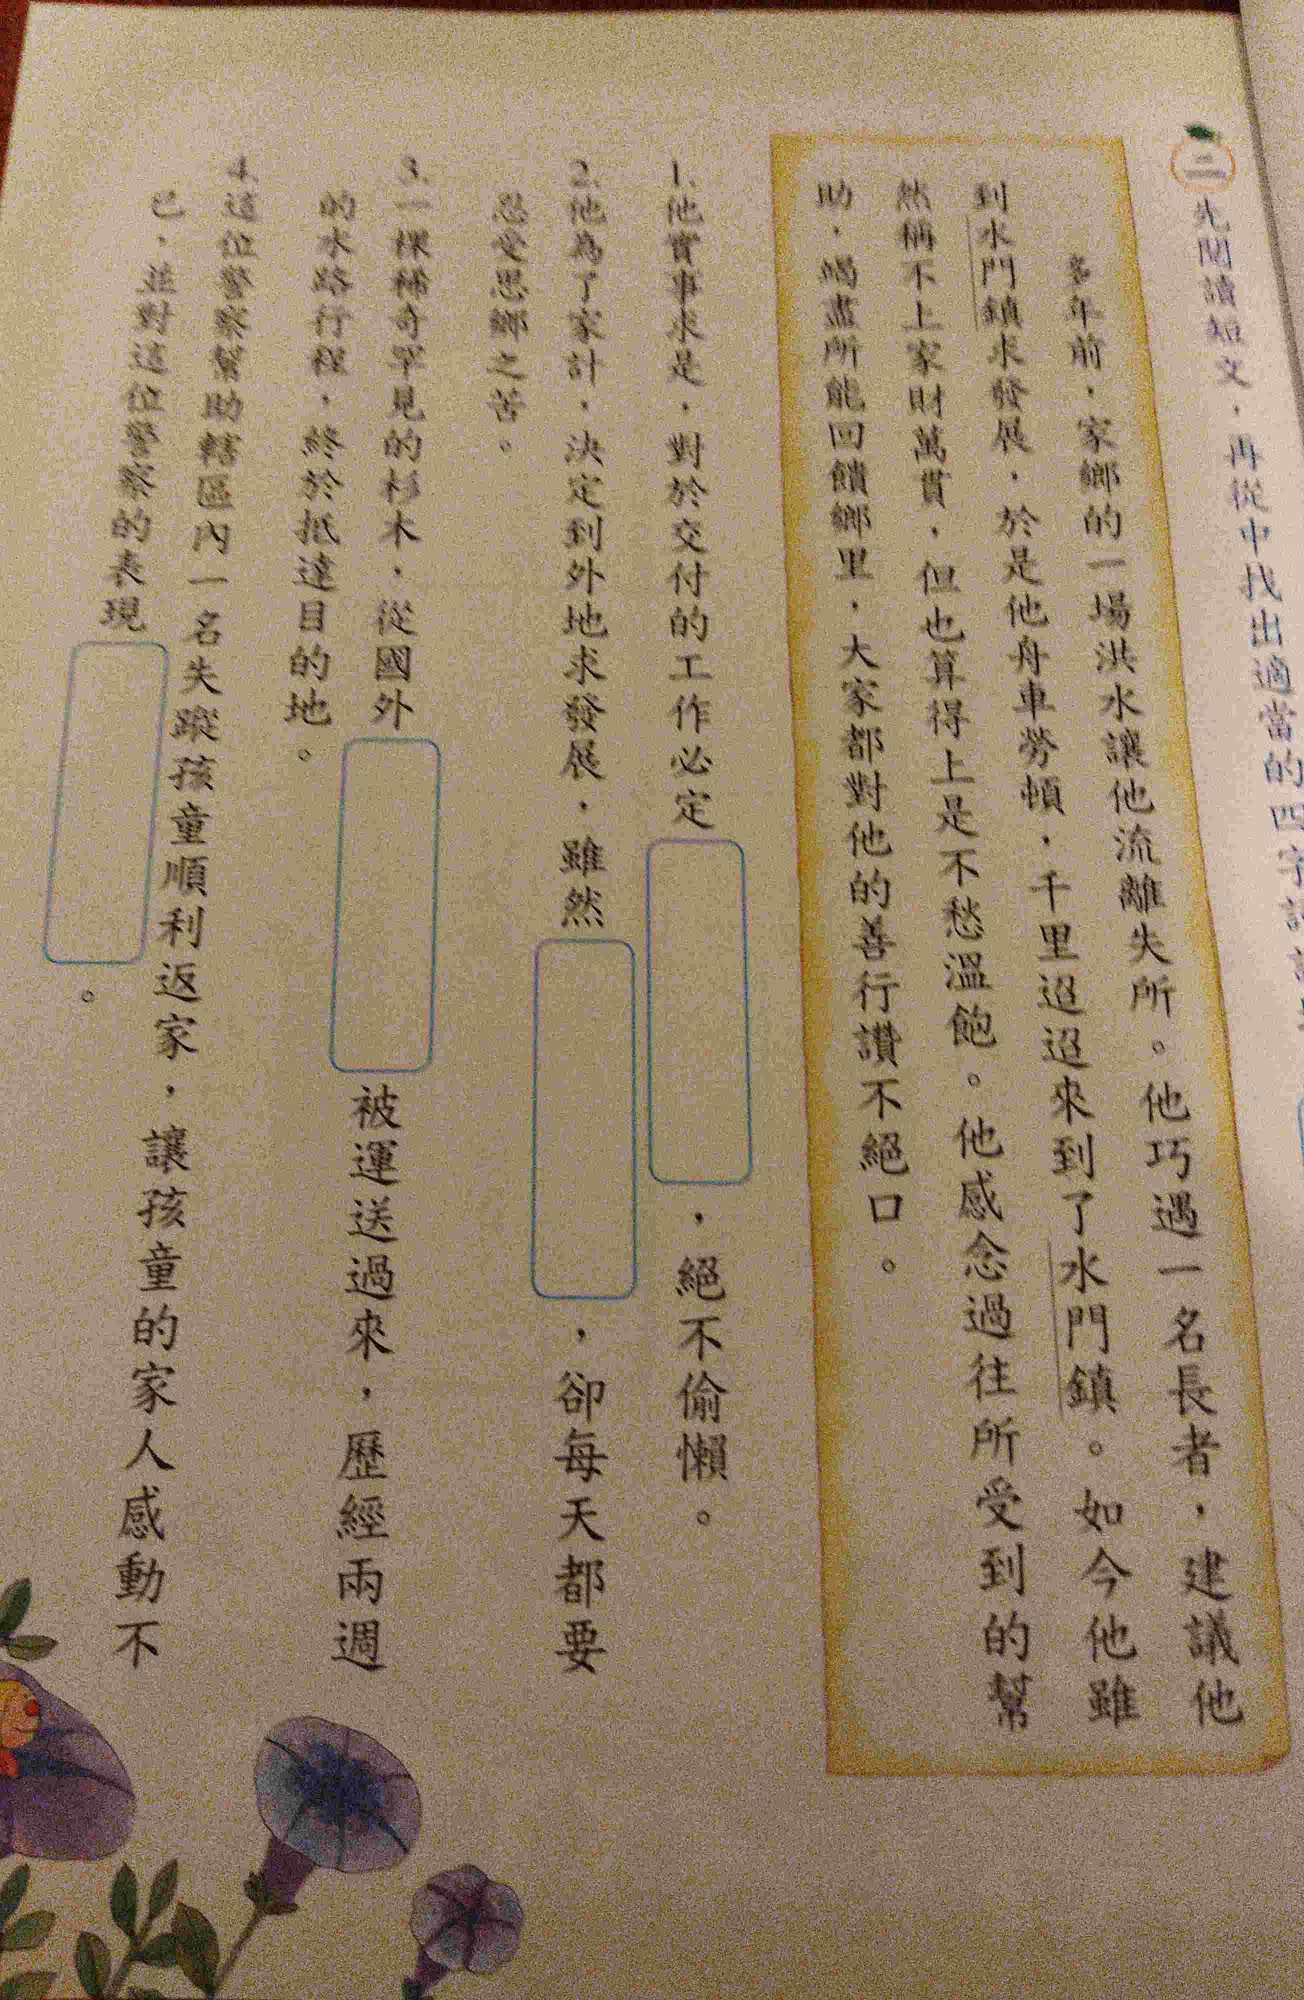 三
先閱讀短文，再從中找出適當的四字
多年前，家鄉的一場洪水讓他流離失所。他巧遇一名長者，建議他
到水門鎮求發展，於是他舟車勞頓，千里迢迢來到了水門鎮。如今他雖
然稱不上家財萬貫，但也算得上是不愁溫飽。他感念過往所受到的幫
助，竭盡所能回饋鄉里，大家都對他的善行讚不絕口。
1.他實事求是，對於交付的工作必定　　　　，絕不偷懶。
2.他為了家計，決定到外地求發展，雖然　　　　，卻每天都要
忍受思鄉之苦。
3.一棵稀奇罕見的杉木，從國外　　　　被運送過來，歷經兩週
的水路行程，終於抵達目的地。
4.這位警察幫助轄區內一名失蹤孩童順利返家，讓孩童的家人感動不
已，並對這位警察的表現　　　　。